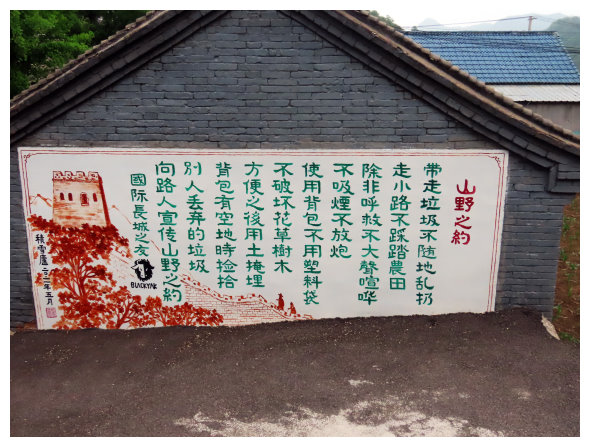 山野之約
帶走垃圾不随地乱扔
走小路不踩踏農田
除非呼救不大聲喧哗
不吸煙不放炮
使用背包不用塑料袋
不破坏花草樹木
方便之後用土掩埋
背包有空地時捡拾
别人丢弃的垃圾
向路人宣传山野之約
国际長城之友
BLACKYAK
二〇二一年五月